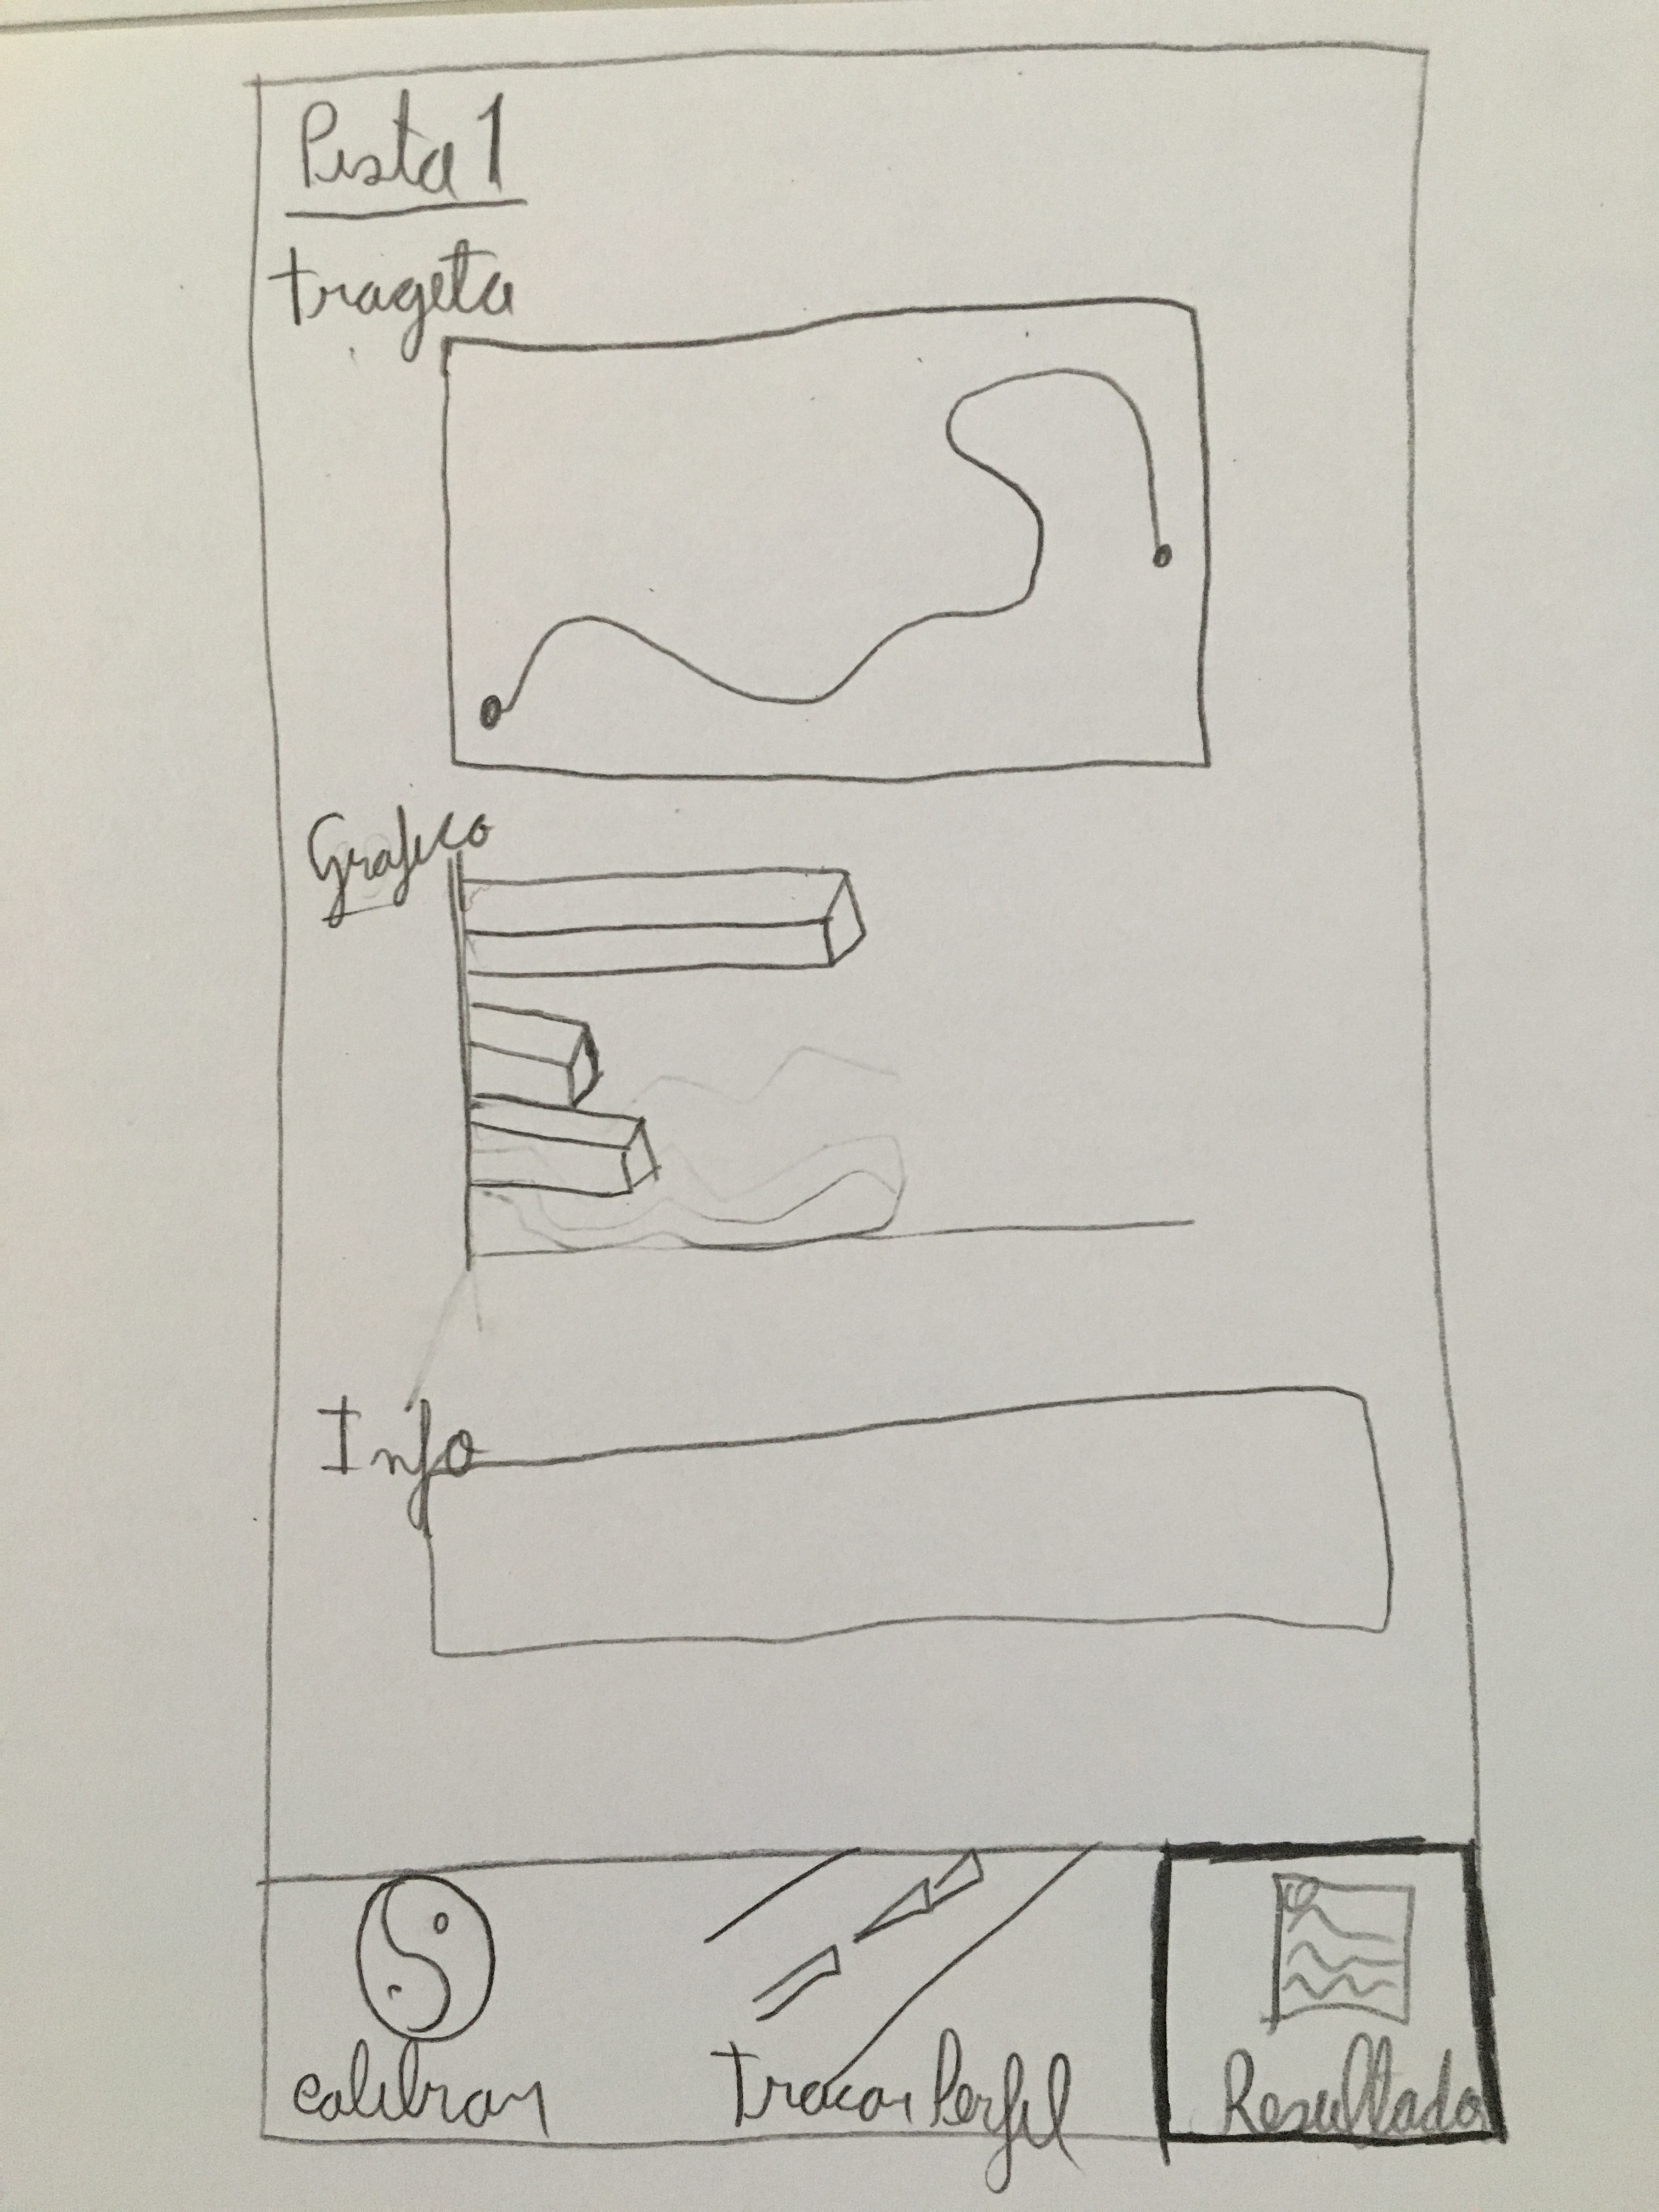 Pista 1
trageta
Grafico
Info
calibrar
Tracar Perfil
Resultado